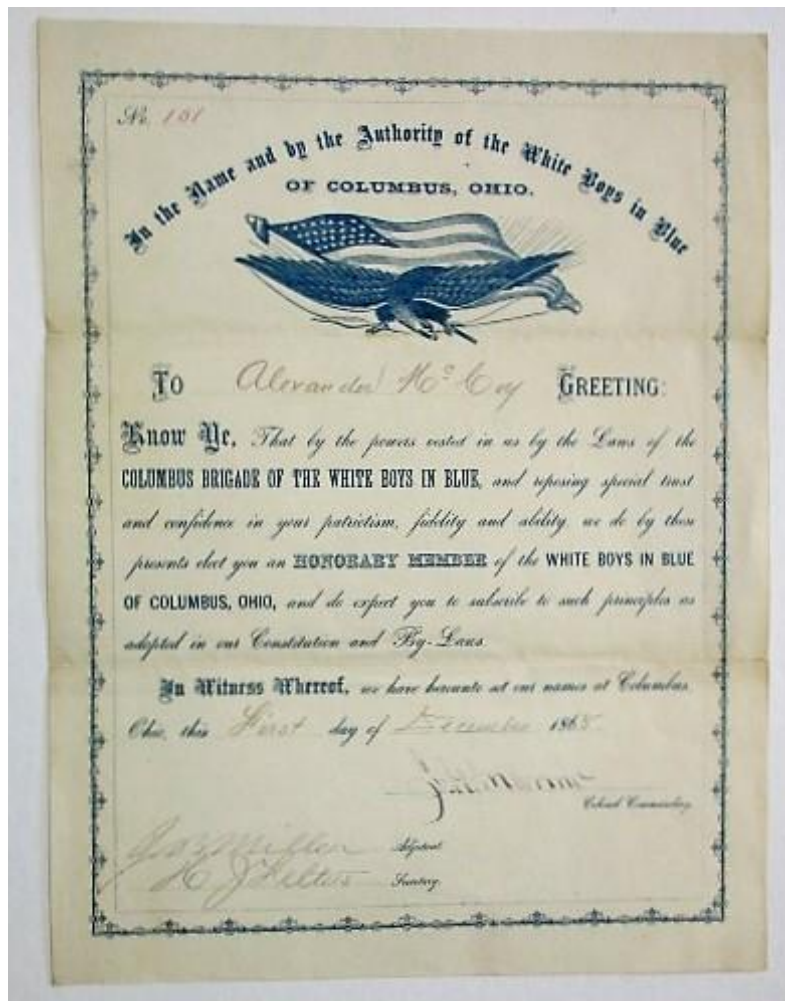 No. 101
In the Name and by the Authority of the White Boys in Blue
OF COLUMBUS, OHIO.
TO Alexander McCoy GREETING:
Know Ye, That by the powers vested in us by the Laws of the
COLUMBUS BRIGADE OF THE WHITE BOYS IN BLUE, and reposing special trust
and confidence in your patriotism, fidelity and ability, we do by these
presents elect you an HONORARY MEMBER of the WHITE BOYS IN BLUE
OF COLUMBUS, OHIO, and do expect you to subscribe to such principles as
adopted in our Constitution and By-Laws.
In Witness Whereof, we have hereunto set our names at Columbus,
Ohio, this First day of December 1868.
Colonel Commanding
Miller Adjutant
Secretary